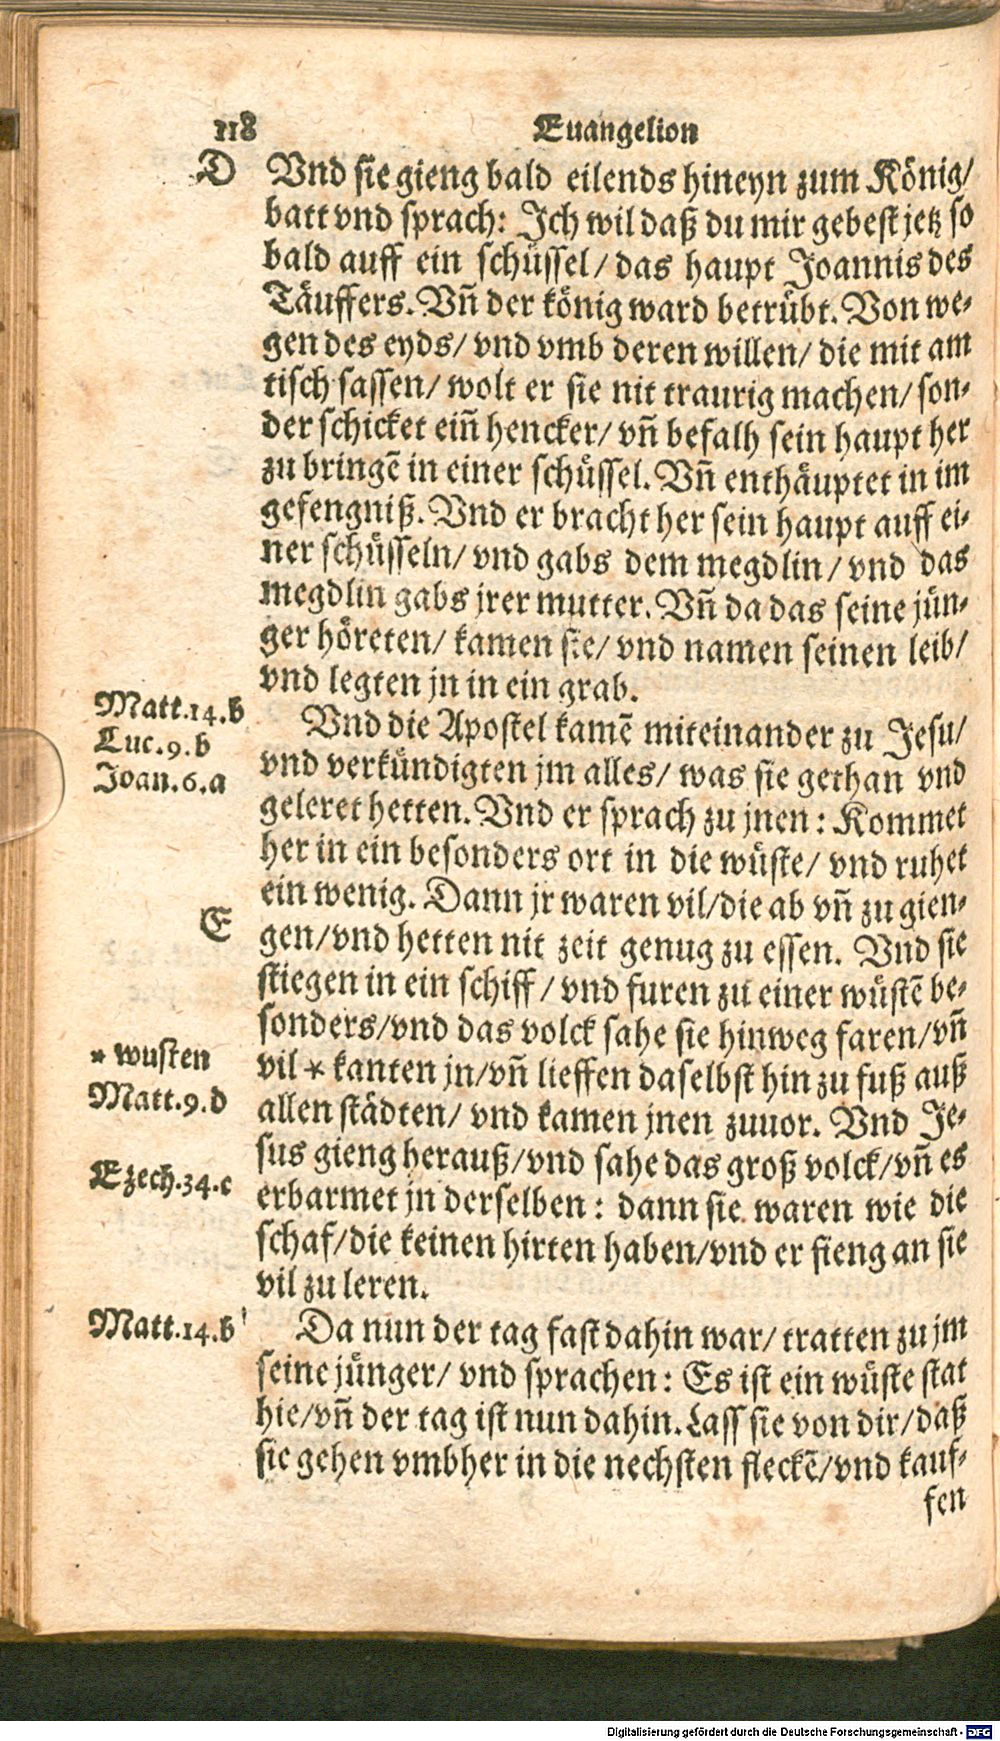 118 Euangelion
D Vnd sie gieng bald eilends hineyn zum König/
batt vnd sprach: Ich wil daß du mir gebest jetz so
bald auff ein schüssel/ das haupt Joannis des
Täuffers. Vñ der könig ward betrübt. Von we-
gen des eyds/ vnd vmb deren willen/ die mit am
tisch sassen/ wolt er sie nit traurig machen/ son-
der schicket eiñ hencker/ vñ befalh sein haupt her
zu bringẽ in einer schüssel. Vñ enthäuptet in im
gefengniß. Vnd er bracht her sein haupt auff ei-
ner schüsseln/ vnd gabs dem megdlin/ vnd das
megdlin gabs jrer mutter. Vñ da das seine jün-
ger höreten/ kamen sie/ vnd namen seinen leib/
vnd legten jn in ein grab.
Matt.14.b
Luc.9.b
Joan.6.a
Vnd die Apostel kamẽ miteinander zu Jesu/
vnd verkündigten jm alles/ was sie gethan vnd
geleret hetten. Vnd er sprach zu jnen: Kommet
her in ein besonders ort in die wüste/ vnd ruhet
ein wenig. Dann jr waren vil/ die ab vñ zu gien-
E gen/ vnd hetten nit zeit genug zu essen. Vnd sie
stiegen in ein schiff/ vnd furen zu einer wüstẽ be-
sonders/ vnd das volck sahe sie hinweg faren/ vñ
* wusten
vil * kanten jn/ vñ lieffen daselbst hin zu fuß auß
Matt.9.d
allen städten/ vnd kamen jnen zuuor. Vnd Je-
sus gieng herauß/ vnd sahe das groß volck/ vñ es
Ezech.34.c
erbarmet jn derselben: dann sie waren wie die
schaf/ die keinen hirten haben/ vnd er fieng an sie
vil zu leren.
Matt.14.b
Da nun der tag fast dahin war/ tratten zu jm
seine jünger/ vnd sprachen: Es ist ein wüste stat
hie/ vñ der tag ist nun dahin. Lass sie von dir/ daß
sie gehen vmbher in die nechsten fleckẽ/ vnd kauf-
fen
Digitalisierung gefördert durch die Deutsche Forschungsgemeinschaft - DFG